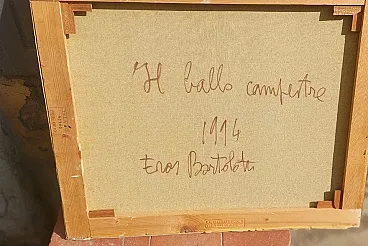 Il ballo campestre
1994
Eros Bartolotti